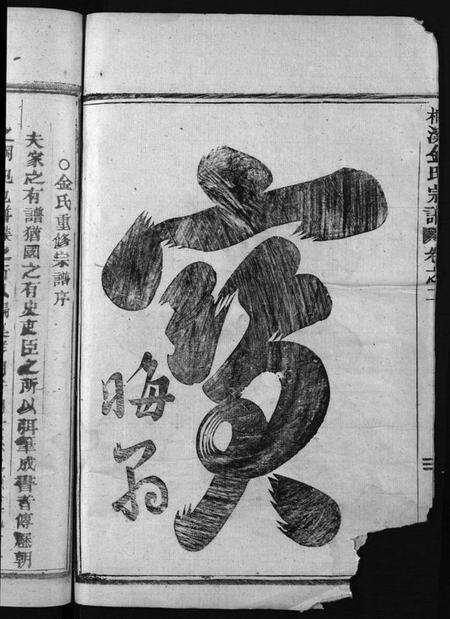 溪金氏宗譜 卷之二
寶
晦翁
○金氏重修宗譜序
夫家之有譜猶國之有史史臣之所以珥筆成書者傳歷朝